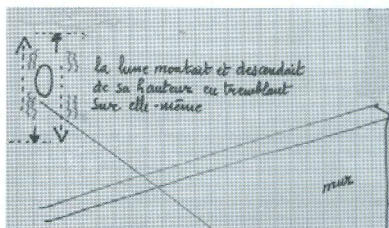 la lune montait et descendait
de sa hauteur en tremblant
sur elle-même
mur